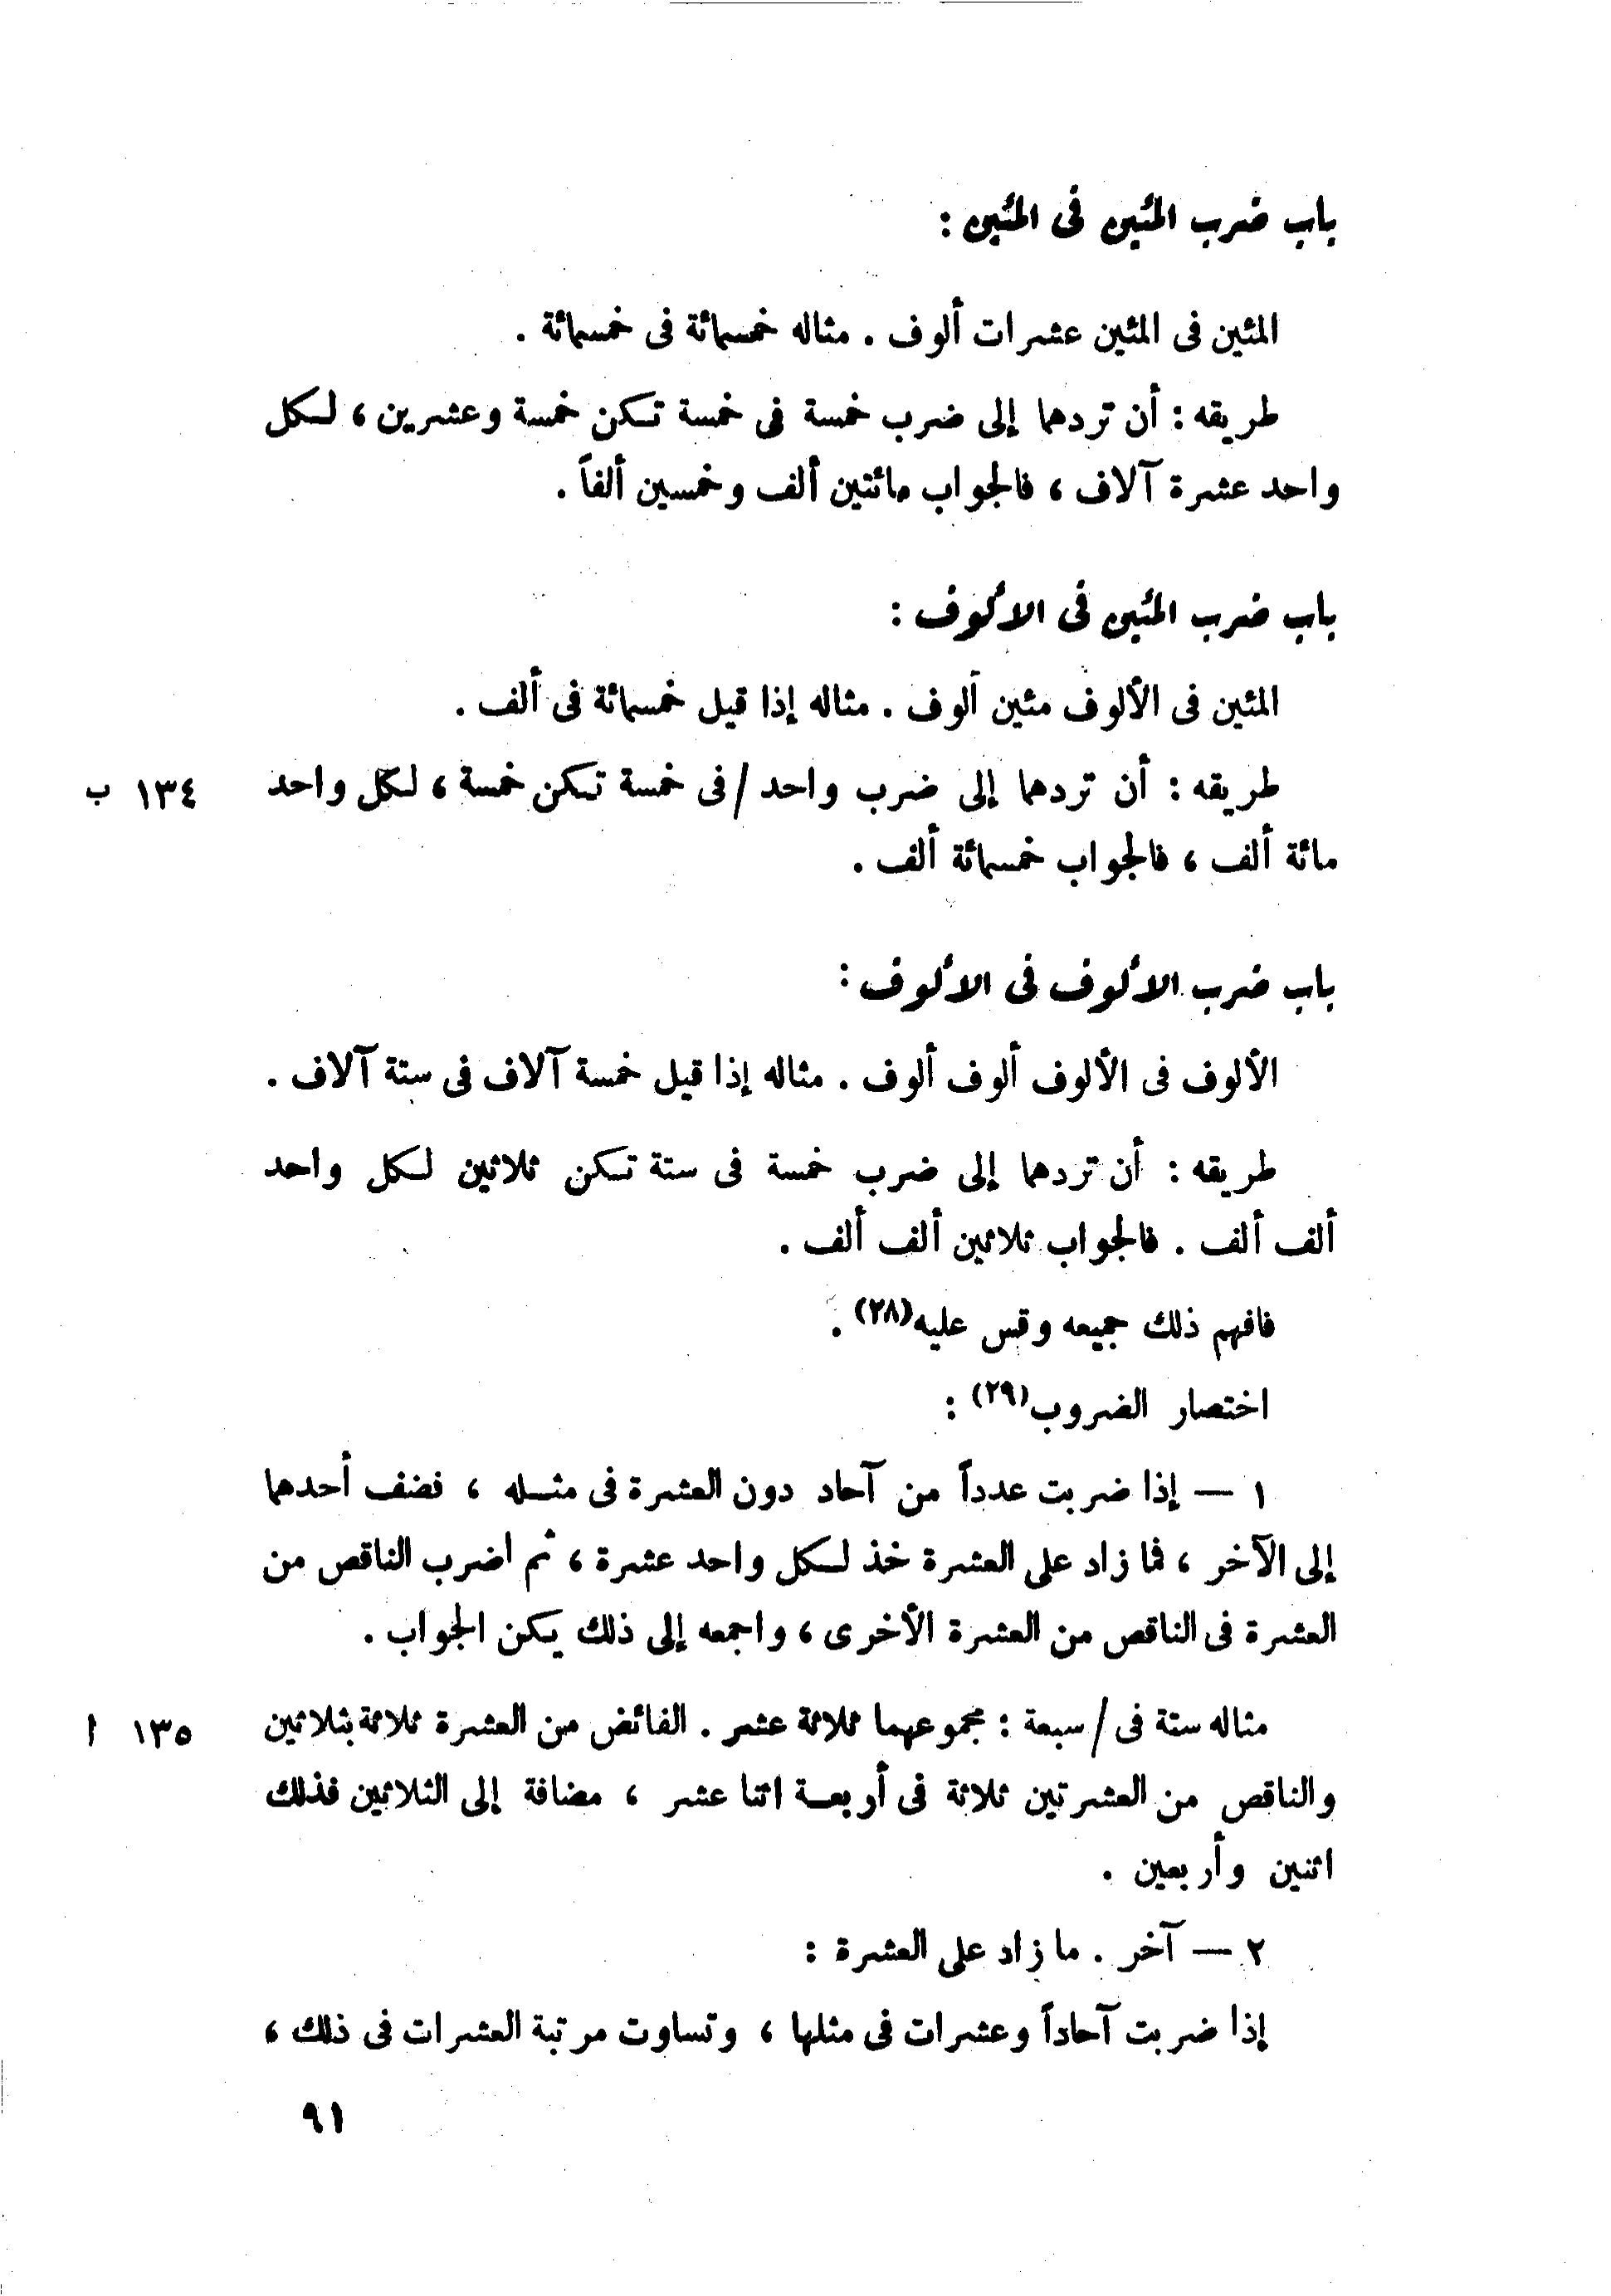 باب ضرب المئين فى المئين :
المئين فى المئين عشرات ألوف . مثاله خمسمائة فى خمسمائة .
طريقه : أن تردهما إلى ضرب خمسة فى خمسة تكن خمسة وعشرين ، لكل
واحد عشرة آلاف ، فالجواب مائتين ألف وخمسين ألفاً .
باب ضرب المئين فى الألوف :
المئين فى الألوف مئين ألوف . مثاله إذا قيل خمسمائة فى ألف .
طريقه : أن تردهما إلى ضرب واحد / فى خمسة تكن خمسة ، لكل واحد ١٣٤ ب
مائة ألف ، فالجواب خمسمائة ألف .
باب ضرب الألوف فى الألوف :
الألوف فى الألوف ألوف ألوف . مثاله إذا قيل خمسة آلاف فى ستة آلاف .
طريقه : أن تردهما إلى ضرب خمسة فى ستة تكن ثلاثين لكل واحد
ألف ألف . فالجواب ثلاثين ألف ألف .
فافهم ذلك جميعه وقس عليه(٢٨) .
اختصار الضروب(٢٩) :
١ — إذا ضربت عدداً من آحاد دون العشرة فى مثله ، فضف أحدهما
إلى الآخر ، فما زاد على العشرة خذ لكل واحد عشرة ، ثم اضرب الناقص من
العشرة فى الناقص من العشرة الأخرى ، واجمعه إلى ذلك يكن الجواب .
مثاله ستة فى / سبعة : مجموعهما ثلاثة عشر . الفائض من العشرة ثلاثة بثلاثين ١٣٥ ا
والناقص من العشرتين ثلاثة فى أربعة اثنا عشر ، مضافة إلى الثلاثين فذلك
اثنين وأربعين .
٢ — آخر . ما زاد على العشرة :
إذا ضربت آحاداً وعشرات فى مثلها ، وتساوت مرتبة العشرات فى ذلك ،
٩١